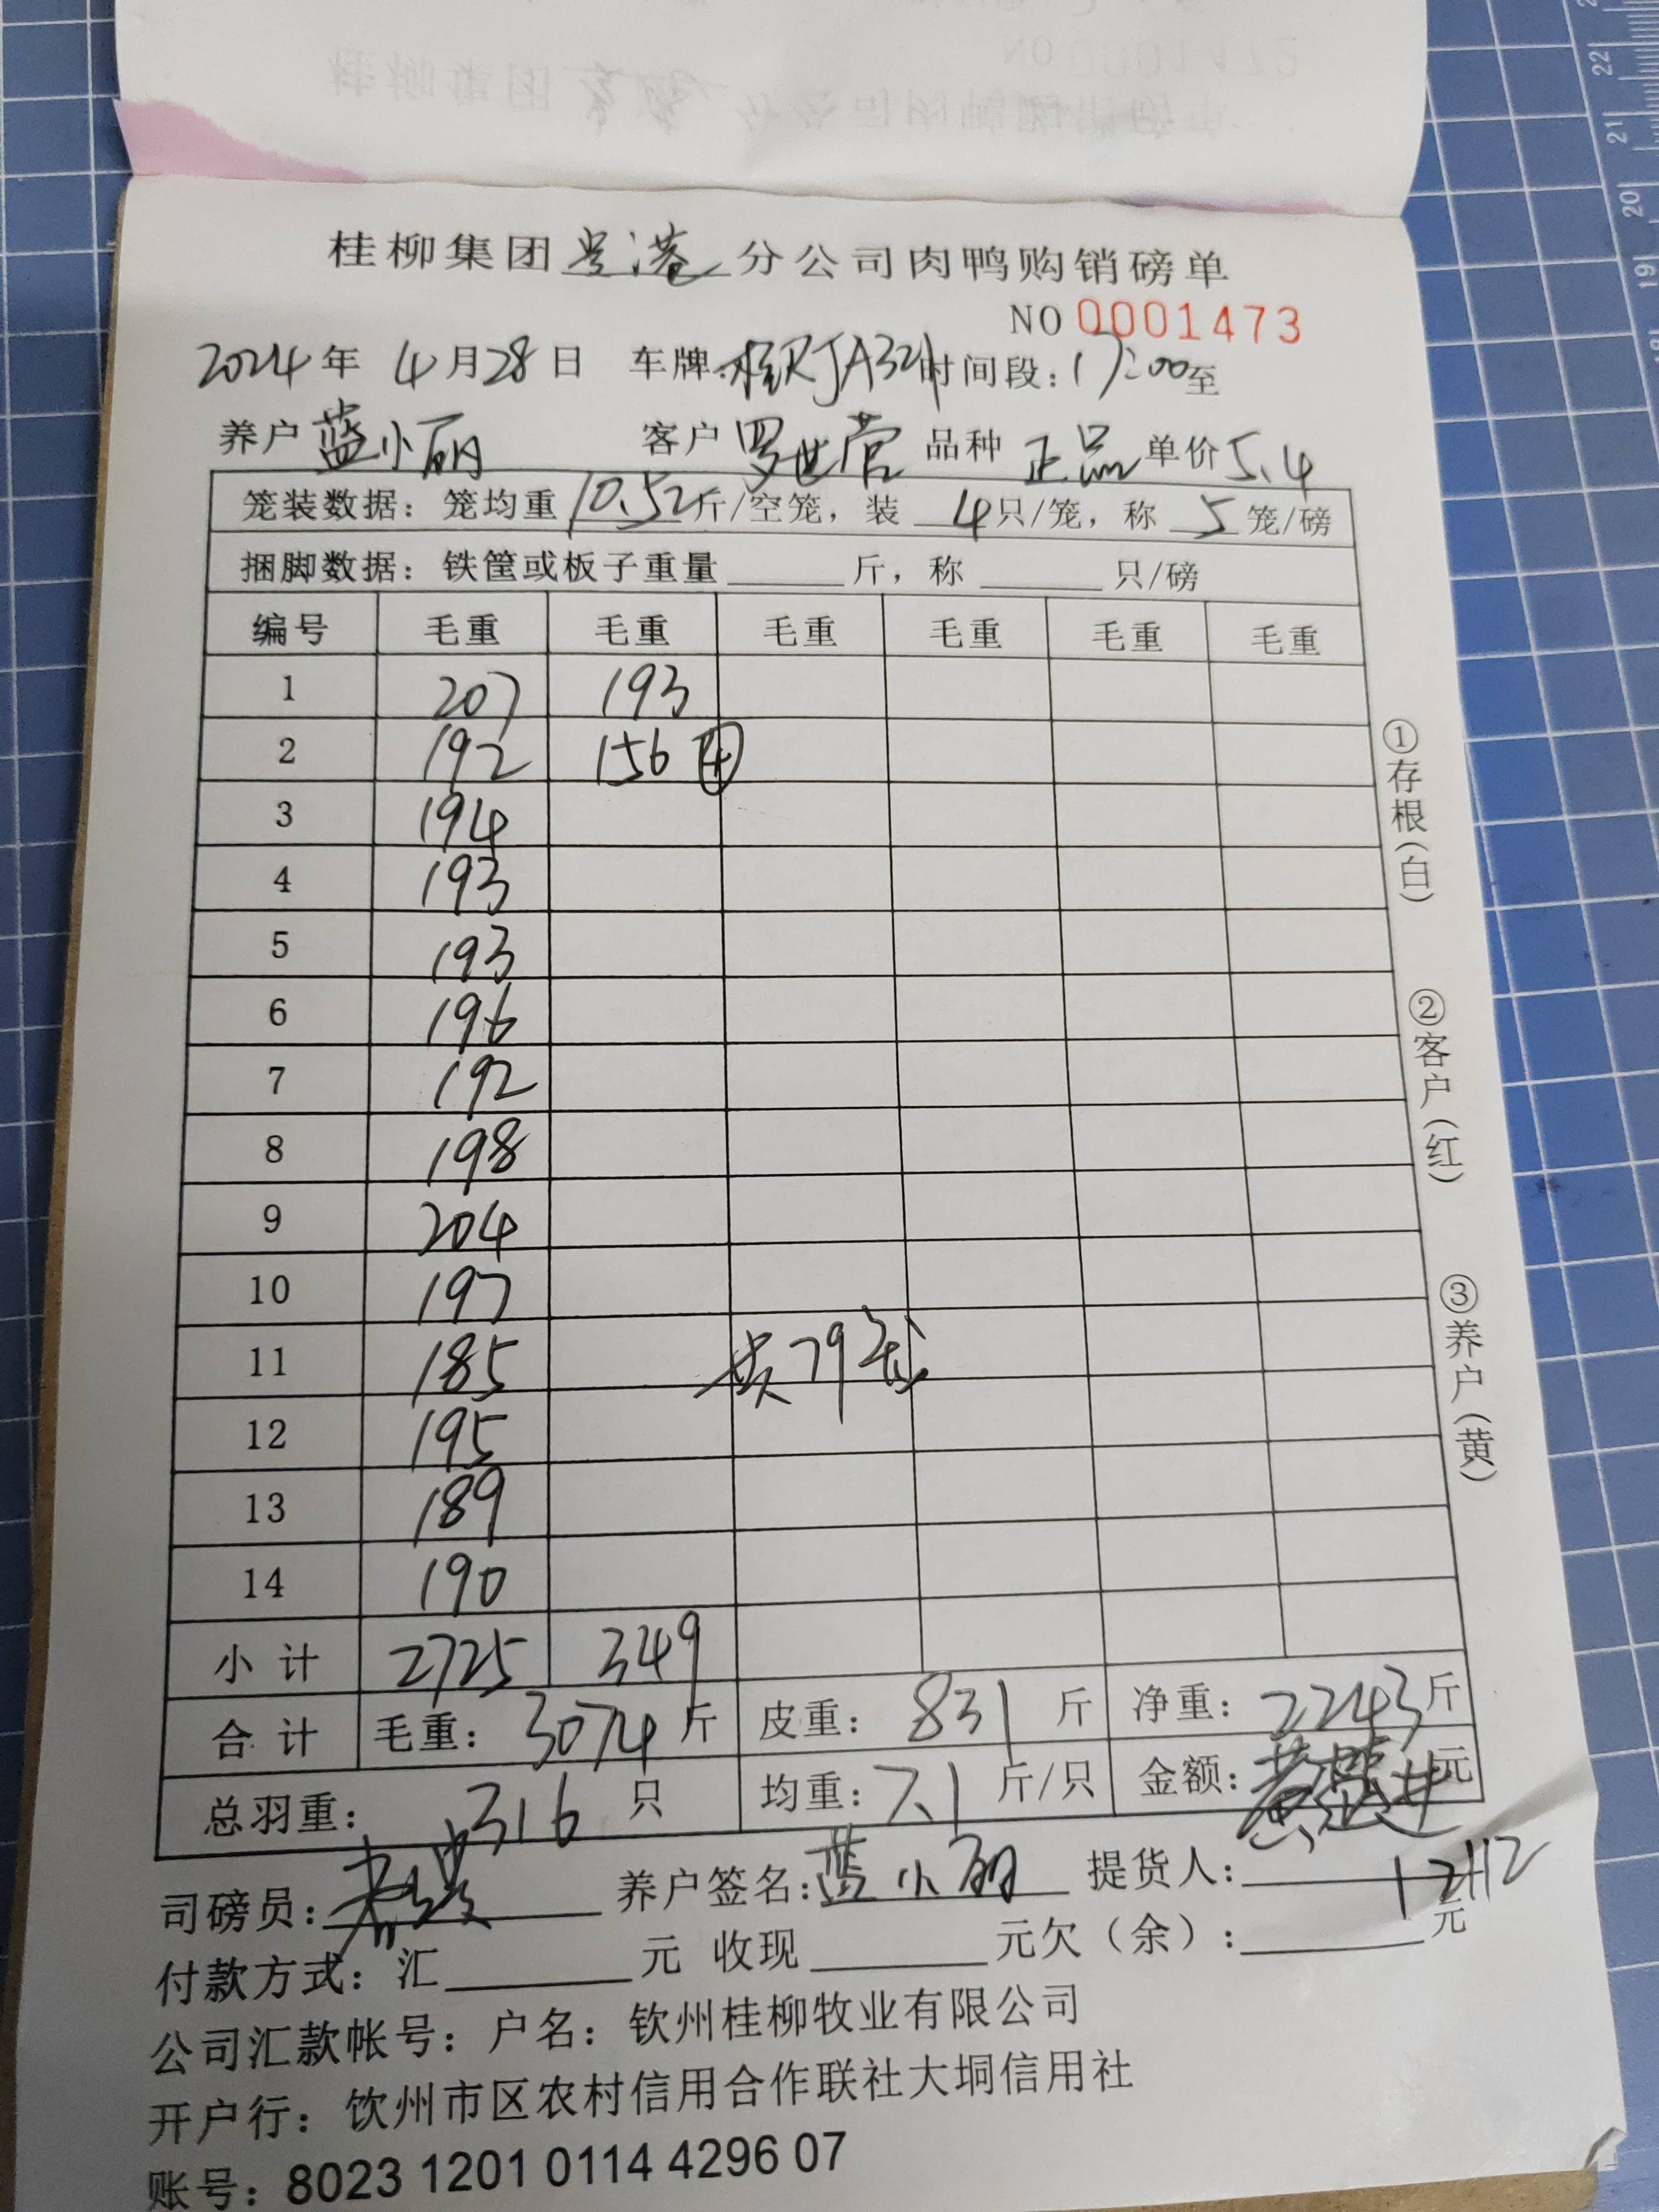 桂柳集团贵港分公司肉鸭购销磅单
NO 0001473
2024年 4月28日 车牌:桂RJA321时间段:17:00至
养户蓝小丽 客户罗世营 品种正品 单价5.4
笼装数据:笼均重10.52斤/空笼,装4只/笼,称5笼/磅
捆脚数据:铁筐或板子重量______斤,称______只/磅
编号 毛重 毛重 毛重 毛重 毛重 毛重
1 207 193
2 192 156 ④
3 194
4 193
5 193
6 196
7 192
8 198
9 204
10 197
11 185 共79笼
12 195
13 189
14 190
小计 2725 349
合计 毛重:3074斤 皮重:831斤 净重:2243斤
总羽重:316只 均重:7.1斤/只 金额:元
司磅员: 养户签名:蓝小丽 提货人:
12112
付款方式:汇______元 收现______元欠(余):______元
公司汇款帐号:户名:钦州桂柳牧业有限公司
开户行:钦州市区农村信用合作联社大垌信用社
账号:8023 1201 0114 4296 07
①存根(白)
②客户(红)
③养户(黄)
22
21
20
19
18